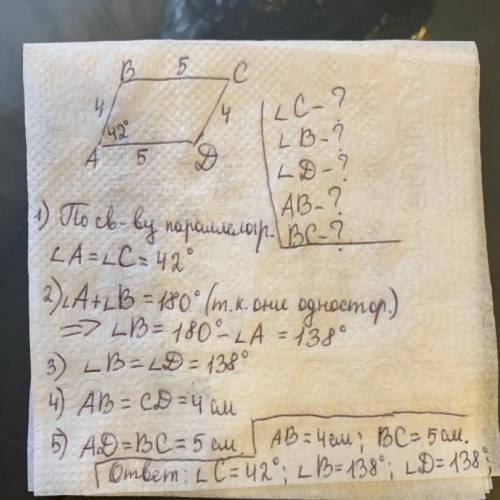 B 5 C
4 4
42°
A 5 D
∠C - ?
∠B - ?
∠D - ?
AB - ?
BC - ?
1) По св-ву параллелогр.
∠A = ∠C = 42°
2) ∠A + ∠B = 180° (т.к. они одностор.)
=> ∠B = 180° - ∠A = 138°
3) ∠B = ∠D = 138°
4) AB = CD = 4 см
5) AD = BC = 5 см
AB = 4 см; BC = 5 см.
Ответ: ∠C = 42°; ∠B = 138°; ∠D = 138°;